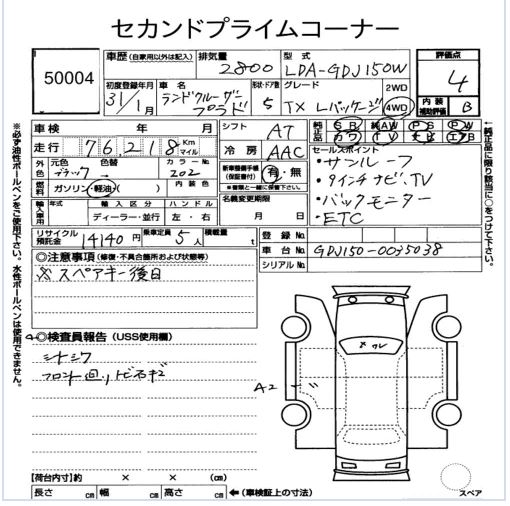 セカンドプライムコーナー
50004
車歴(自家用以外は記入) 排気量 型式 評価点
2800 LDA-GDJ150W 4
初度登録年月 車名 形状・ドア数 グレード 2WD
31/1月 ランドクルーザープラド 5 TX Lパッケージ 4WD
内装補助評価 B
車検 年 月 シフト AT 純正品 SR AW PS PW
走行 76,218 Km マイル 冷房 AAC カワ TV エアB
外色 元色 ブラック 色替 カラーNo. 202
新車整備手帳(保証書付) 有・無
※書類と一緒に保管下さい。
セールスポイント
・サンルーフ
・9インチナビ、TV
・バックモニター
・ETC
燃料 ガソリン・軽油・( ) 内装色
名義変更期限
月 日
輸入車用 年式 輸入区分 ハンドル
ディーラー・並行 左・右
リサイクル預託金 14140円 乗車定員 5人 積載量 t
登録No.
車台No. GDJ150-0035038
シリアルNo.
◎注意事項(修復・不具合箇所および状態等)
※スペアキー後日
◎検査員報告(USS使用欄)
シナシワ
フロント回りトビキズ
メワレ
A2
【荷台内寸】約 × × (㎝)
長さ ㎝ 幅 ㎝ 高さ ㎝ ←(車検証上の寸法)
スペア
※必ず油性ボールペンをご使用下さい。水性ボールペンは使用できません。
←純正品に限り該当に○をつけて下さい。